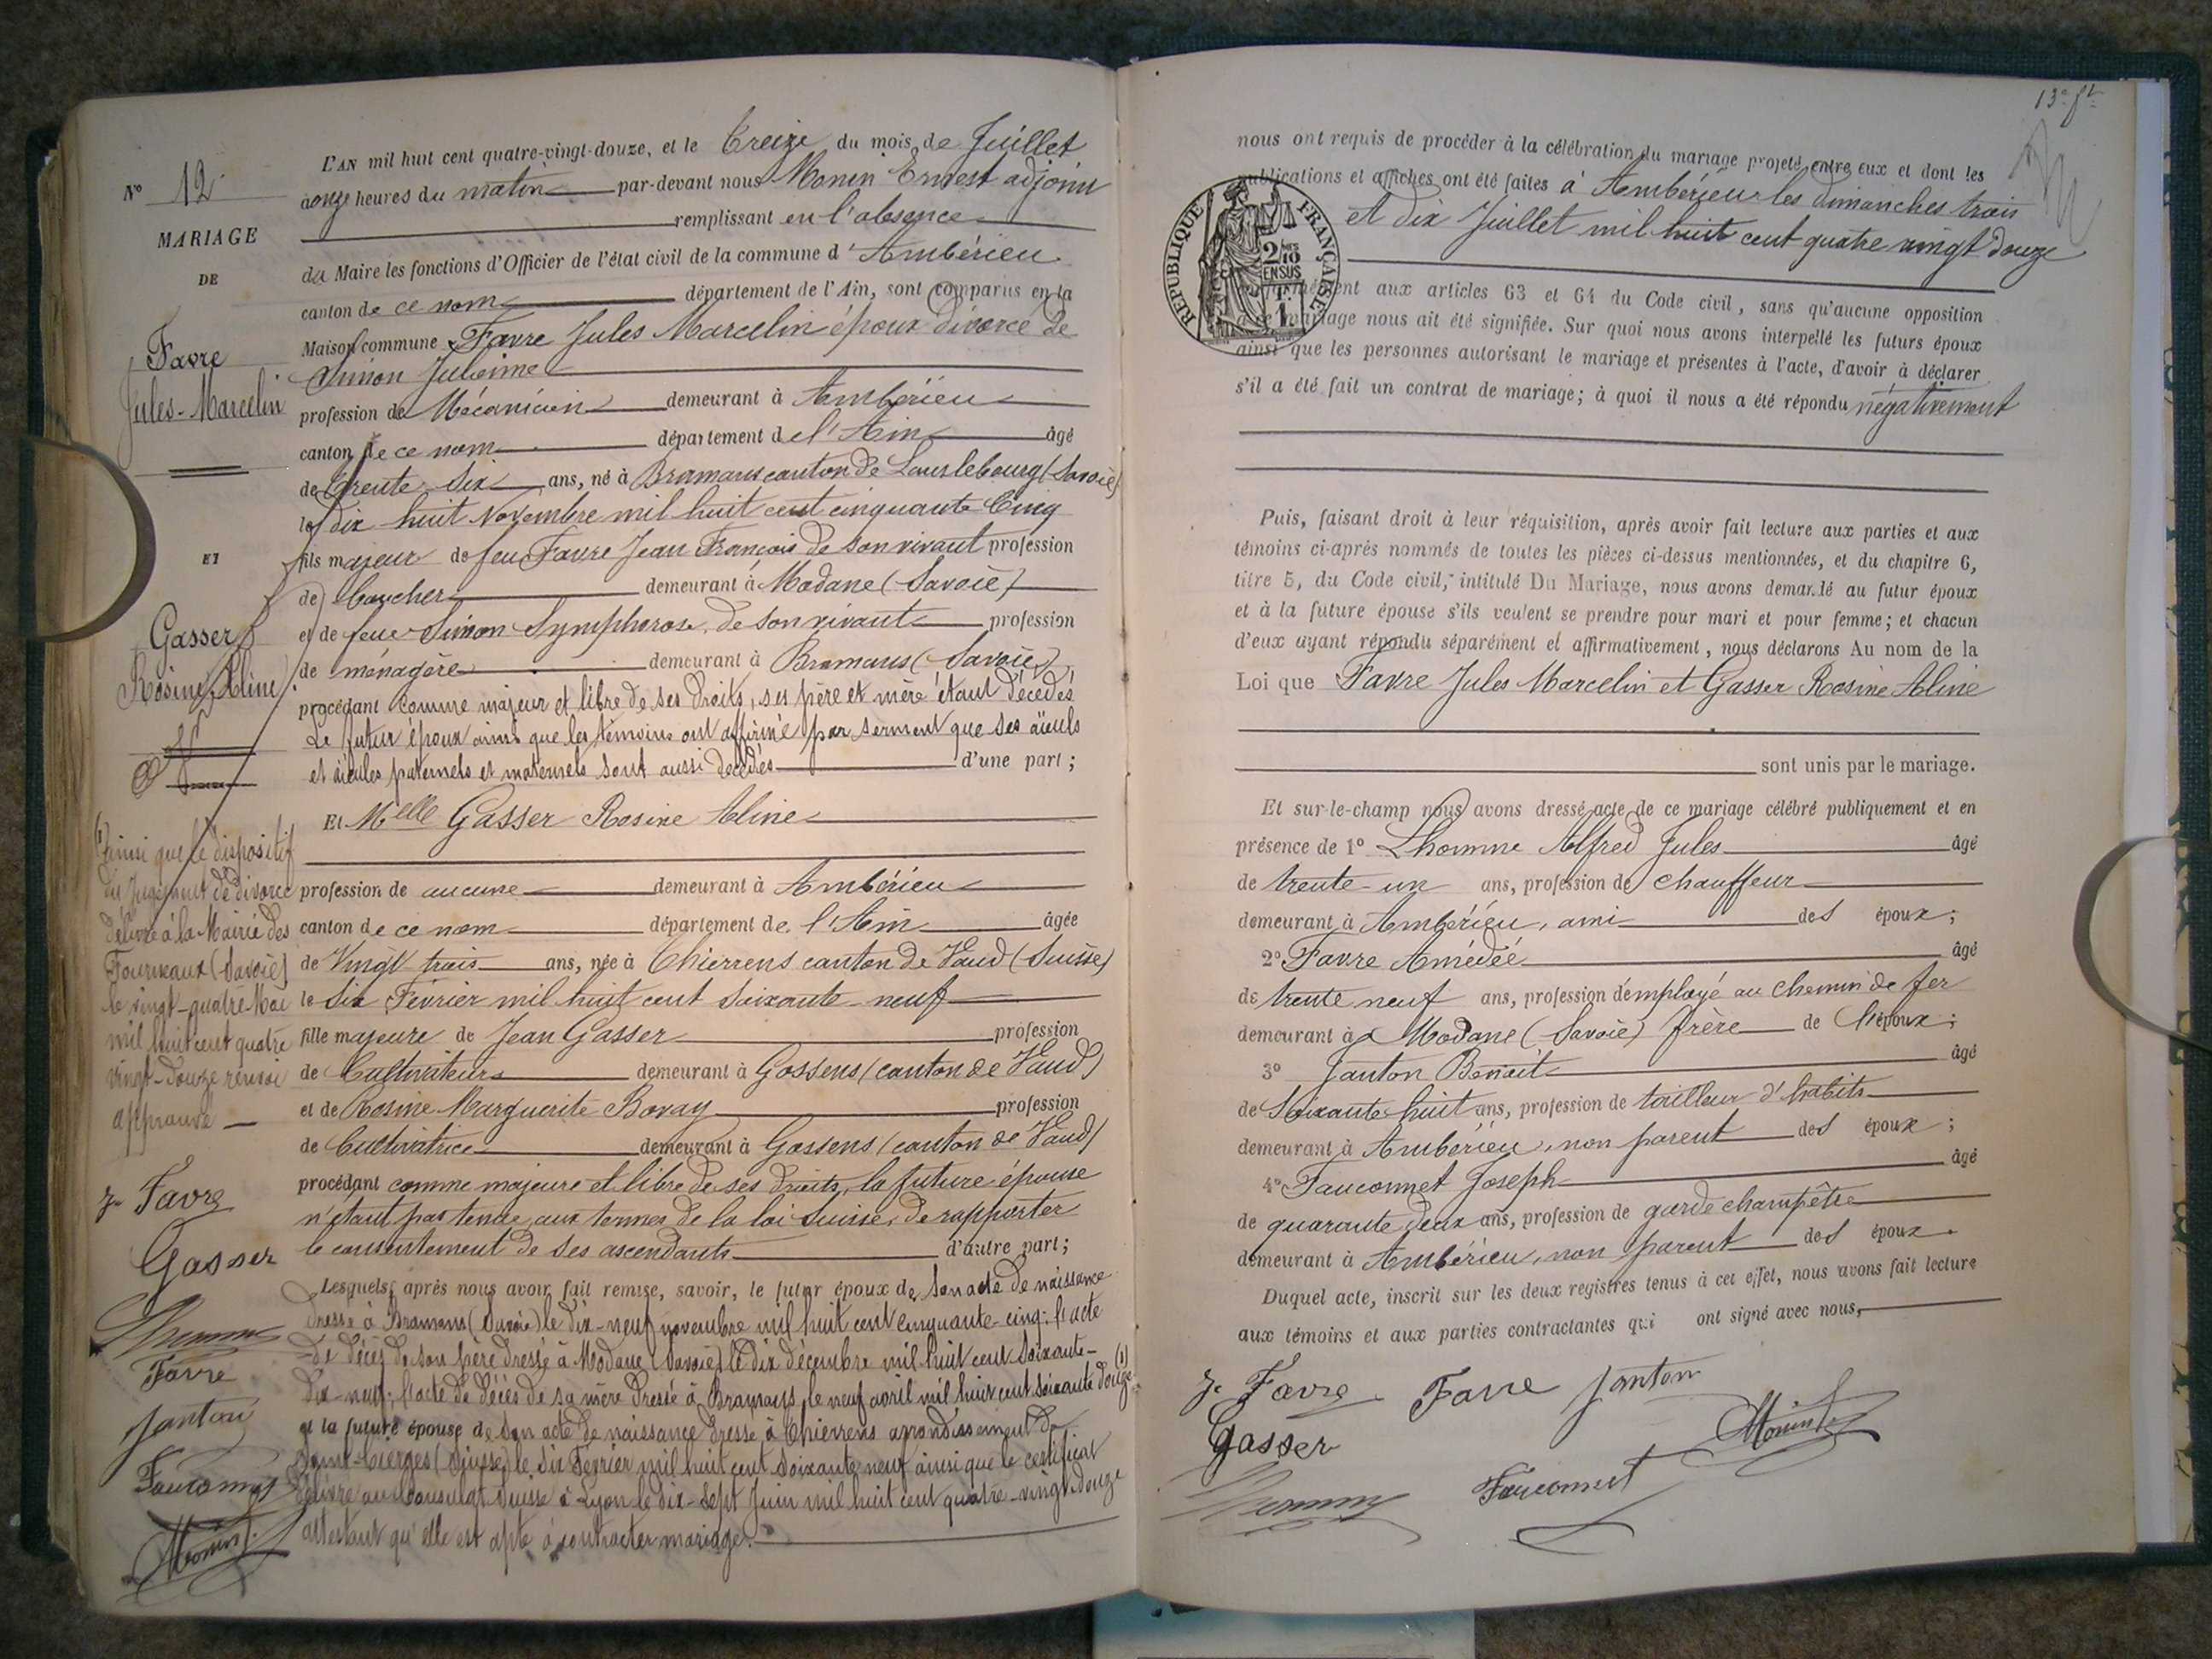 N° 12
MARIAGE
DE
Favre
Jules-Marcelin
ET
Gasser
Rosine Aline
(1) ainsi que le dispositif
du jugement de divorce
délivré à la Mairie des
Fourneaux (Savoie)
le vingt-quatre Mai
mil huit cent quatre
vingt-douze renvoi
approuvé
J. Favre
Gasser
Favre
Janton
Fauconnet
Monin
L'AN mil huit cent quatre-vingt-douze, et le treize du mois de Juillet
à onze heures du matin par-devant nous Monin Ernest adjoint
remplissant en l'absence
du Maire les fonctions d'Officier de l'état civil de la commune d'Ambérieu
canton de ce nom département de l'Ain, sont comparus en la
Maison commune Favre Jules Marcelin époux divorcé de
Simon Julienne
profession de Mécanicien demeurant à Ambérieu
canton de ce nom département de l'Ain âgé
de trente six ans, né à Bramans canton de Lanslebourg (Savoie)
le dix huit Novembre mil huit cent cinquante Cinq
fils majeur de feu Favre Jean François de son vivant profession
de boucher demeurant à Modane (Savoie)
et de feue Simon Symphorose de son vivant profession
de ménagère demeurant à Bramans (Savoie)
procédant comme majeur et libre de ses droits, ses père et mère étant décédés
Le futur époux ainsi que les témoins ont affirmé par serment que ses aïeuls
et aïeules paternels et maternels sont aussi décédés d'une part;
Et Melle Gasser Rosine Aline
profession de aucune demeurant à Ambérieu
canton de ce nom département de l'Ain âgée
de Vingt trois ans, née à Chierrens canton de Vaud (Suisse)
le Six Février mil huit cent soixante neuf
fille majeure de Jean Gasser profession
de Cultivateur demeurant à Gossens (canton de Vaud)
et de Rosine Marguerite Bovay profession
de Cultivatrice demeurant à Gossens (canton de Vaud)
procédant comme majeure et libre de ses droits, la future épouse
n'étant pas tenue aux termes de la loi Suisse, de rapporter
le consentement de ses ascendants d'autre part;
Lesquels, après nous avoir fait remise, savoir, le futur époux de son acte de naissance
dressé à Bramans (Savoie) le dix-neuf novembre mil huit cent cinquante-cinq; l'acte
de décès de son père dressé à Modane (Savoie) le dix décembre mil huit cent soixante-
dix-neuf; l'acte de décès de sa mère dressé à Bramans le neuf avril mil huit cent soixante douze (1)
et la future épouse de son acte de naissance dressé à Chierrens arrondissement de
Saint-Cierges (Suisse) le six Février mil huit cent soixante neuf ainsi que le certificat
délivré au Consulat Suisse à Lyon le dix-sept Juin mil huit cent quatre-vingt-douze
attestant qu'elle est apte à contracter mariage.
13e ft
nous ont requis de procéder à la célébration du mariage projeté entre eux et dont les
publications et affiches ont été faites à Ambérieu les dimanches trois
et dix Juillet mil huit cent quatre vingt douze
RÉPUBLIQUE FRANÇAISE
2/10 EN SUS
1 F.
aux articles 63 et 64 du Code civil, sans qu'aucune opposition
mariage nous ait été signifiée. Sur quoi nous avons interpellé les futurs époux
ainsi que les personnes autorisant le mariage et présentes à l'acte, d'avoir à déclarer
s'il a été fait un contrat de mariage; à quoi il nous a été répondu négativement
Puis, faisant droit à leur réquisition, après avoir fait lecture aux parties et aux
témoins ci-après nommés de toutes les pièces ci-dessus mentionnées, et du chapitre 6,
titre 5, du Code civil, intitulé Du Mariage, nous avons demandé au futur époux
et à la future épouse s'ils veulent se prendre pour mari et pour femme; et chacun
d'eux ayant répondu séparément et affirmativement, nous déclarons Au nom de la
Loi que Favre Jules Marcelin et Gasser Rosine Aline
sont unis par le mariage.
Et sur-le-champ nous avons dressé acte de ce mariage célébré publiquement et en
présence de 1° Lhomme Alfred Jules âgé
de trente-un ans, profession de chauffeur
demeurant à Ambérieu, ami des époux;
2° Favre Amédée âgé
de trente neuf ans, profession d'employé au chemin de fer
demeurant à Modane (Savoie) frère de l'époux;
3° Janton Benoit âgé
de Soixante huit ans, profession de tailleur d'habits
demeurant à Ambérieu, non parent des époux;
4° Fauconnet Joseph âgé
de quarante deux ans, profession de garde champêtre
demeurant à Ambérieu, non parent des époux.
Duquel acte, inscrit sur les deux registres tenus à cet effet, nous avons fait lecture
aux témoins et aux parties contractantes qui ont signé avec nous,
J. Favre Favre Janton
Gasser Monin
Fauconnet